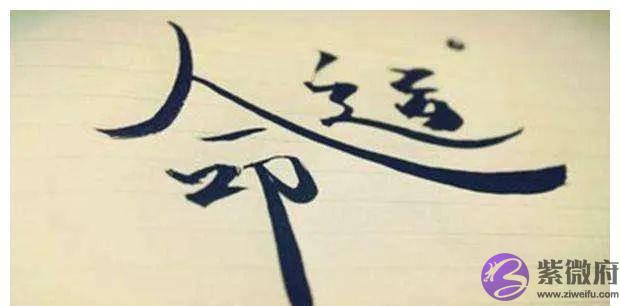 命运
紫微府
www.ziweifu.com